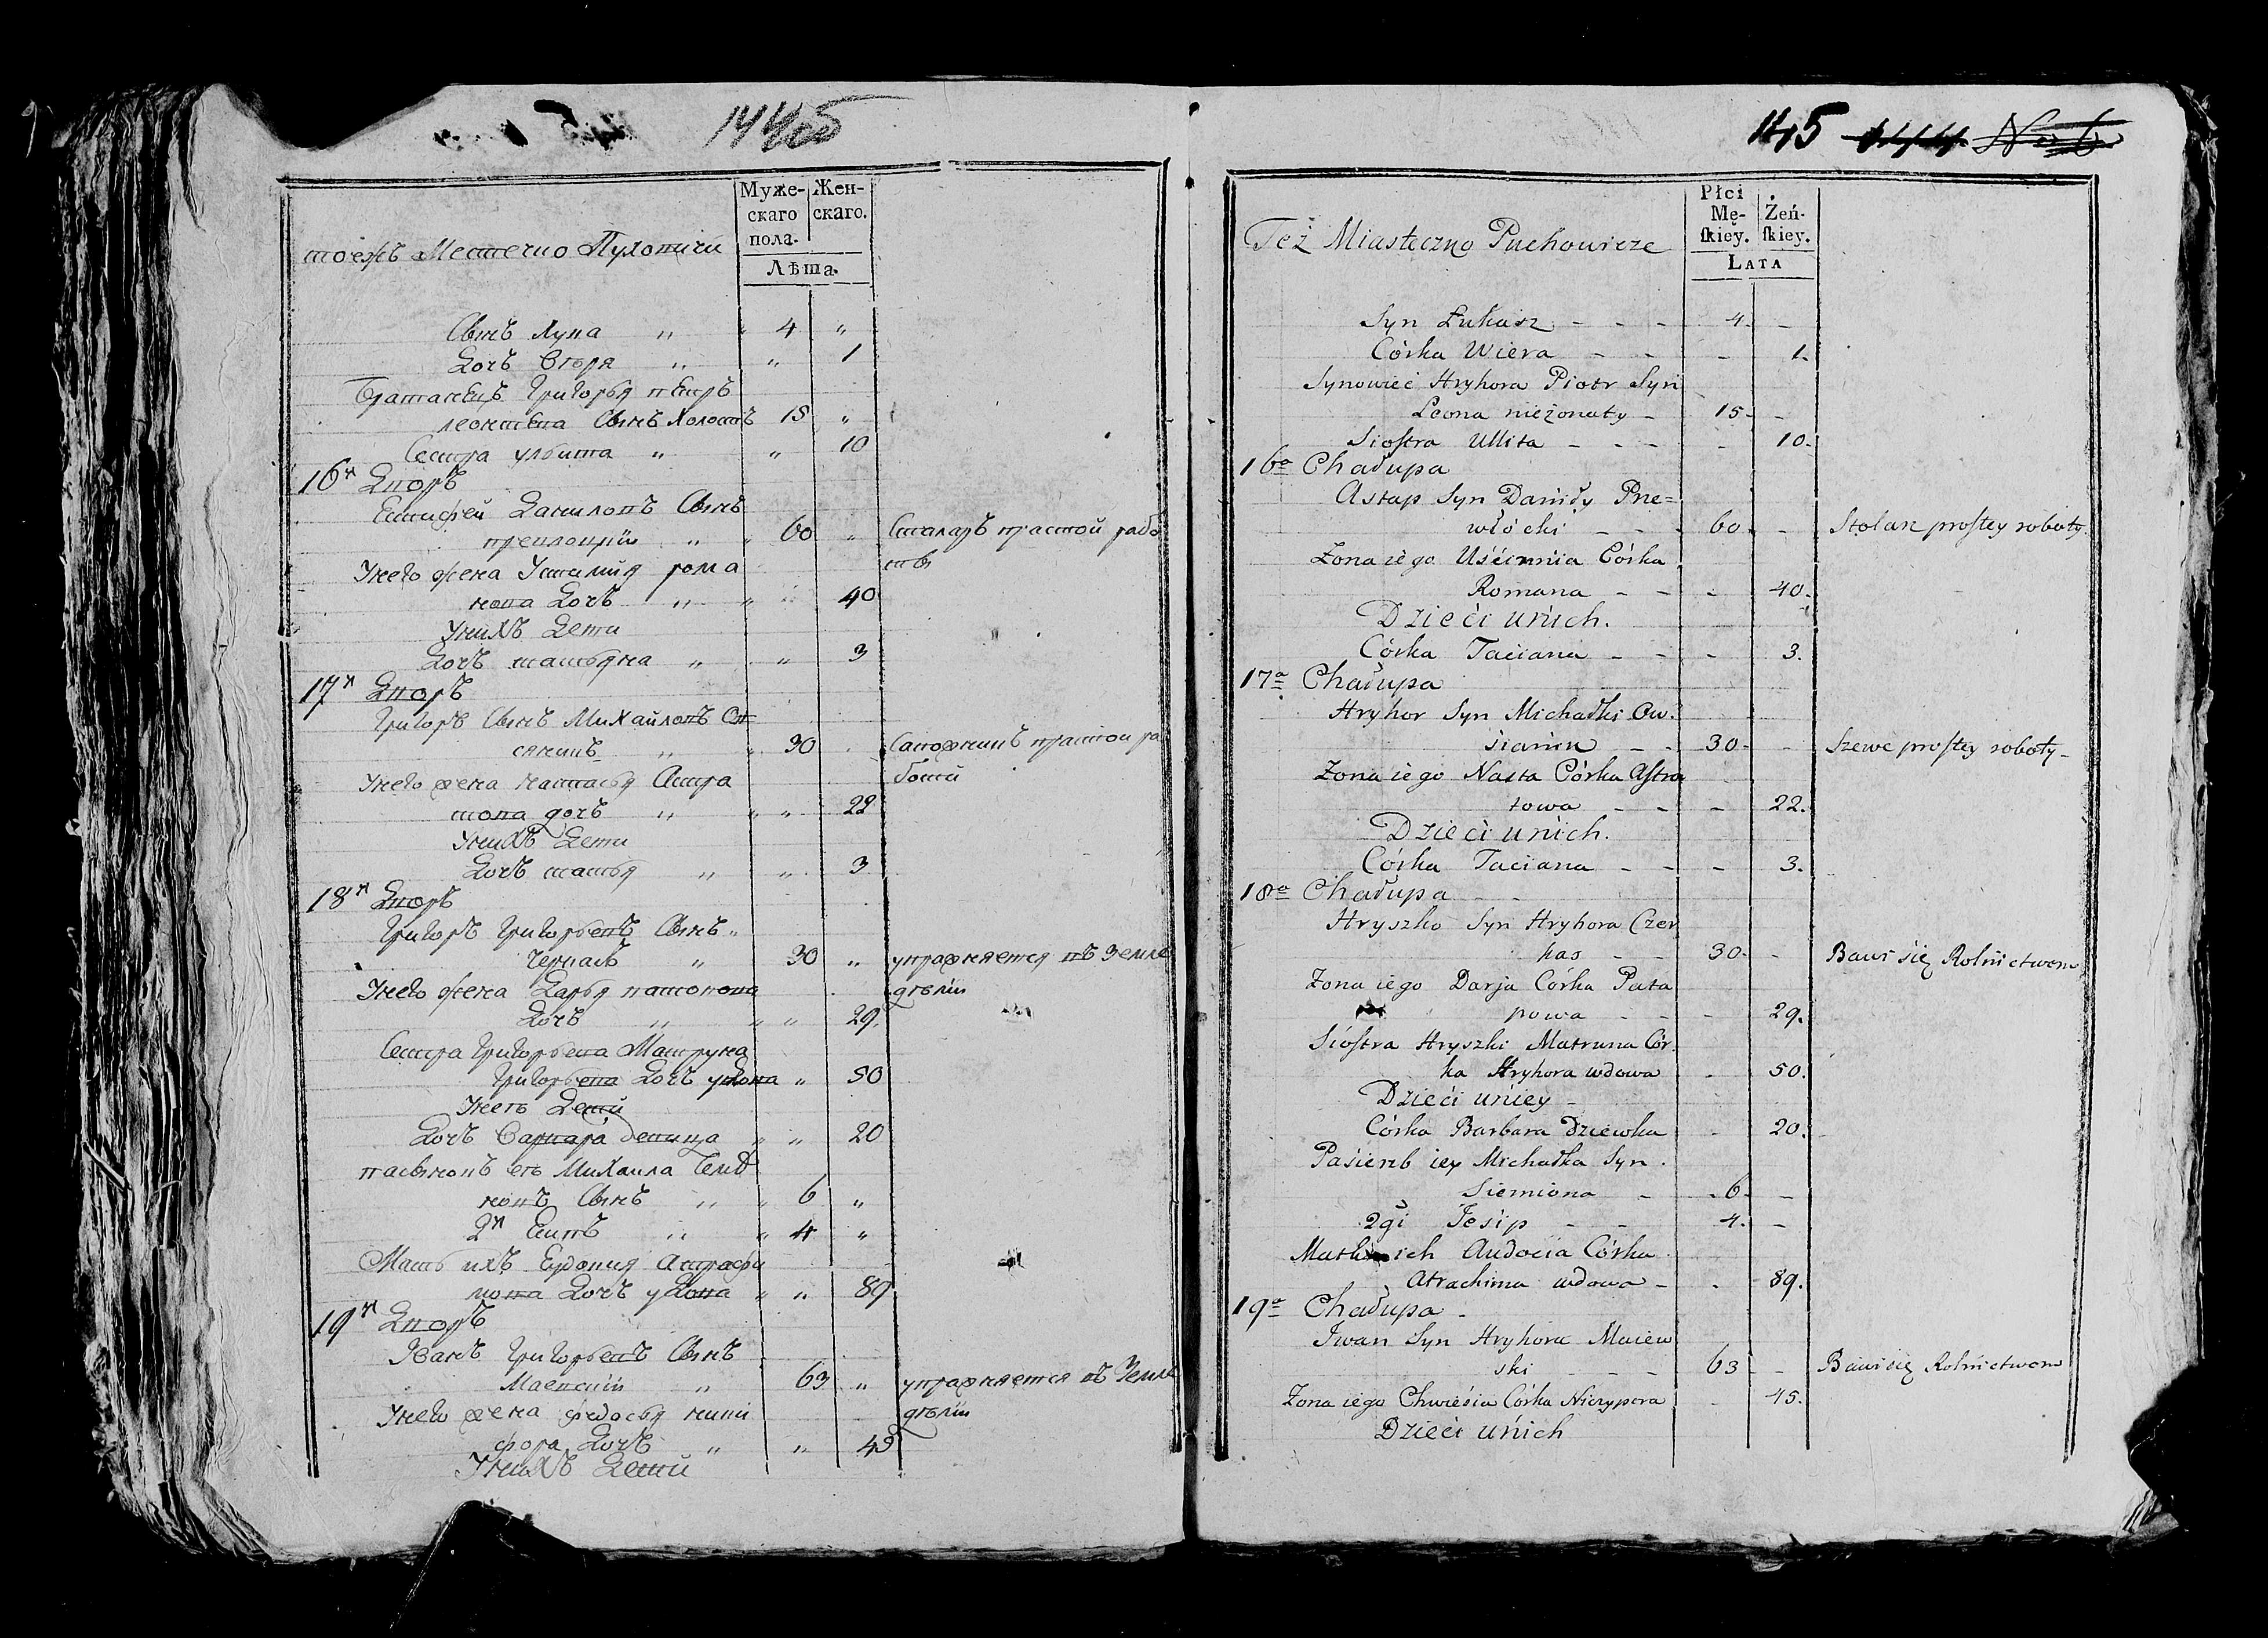 144об
тоежъ Местечко Пуховичи
Муже-
скаго
пола.
Жен-
скаго.
Лѣта.
Сынъ Лука „ „ 4 „
Дочь Вѣра „ „ 1
Братанецъ Григорья Петръ
Леонтьева Сынъ Холостъ 15 „
Сестра Улита „ „ 10
16й Дворъ
Евстифей Даниловъ Сынъ
„ „ 60 „ Сталяръ прастой рабо
У него жена Устимия Рома ты
нова Дочь „ „ „ 40
У нихъ Дети
Дочь Татьяна „ „ 3
17й Дворъ
Григоръ Сынъ Михайловъ Ов
сянинъ „ „ 30 . Сапожникъ прастой ра
У него жена Настасья Астра боти
това дочь „ „ „ 22
У нихъ Дети
Дочь Татья „ „ 3
18й Дворъ
Григоръ Григорьевъ Сынъ „
Черкасъ „ 30 „ упражняется въ земле
У него жена Дарья Патапова дѣлiи
Дочь „ „ „ 29.
Сестра Григорьева Матруна
Григорьева Дочь удова „ 50
У неѣ Дети
Дочь Варвара девица „ „ 20
пасынокъ еѣ Михаила Семѣ
новъ Сынъ „ „ 6 „
2й Есипъ „ „ 4 „
Мать ихъ Евдокия Астрафи
мова Дочь удова „ „ 89
19й Дворъ
Иванъ Григорьевъ Сынъ
Маевскiй „ 63 „ упражняется въ Земле
У него жена Федосья Ники дѣлiи
фора Дочь „ „ 45
У нихъ Дети
145 144 No 6
Też Miasteczno Puchowicze
Płci
Mę-
skiey.
Żeń-
skiey.
Lata
Syn Łukasz - - - 4. -
Córka Wiera - - - 1.
Synowiec Hryhora Piotr Syn
Leona nieżonaty - 15- -
Siostra Ullita - - - - 10.
16a Chałupa
Astap Syn Daniły Pre=
włocki - - - 60- - Stolarz prostey roboty
Żona iego Uścinnia Córka
Romana - - - 40.
Dzieci unich.
Córka Taciana - - - 3.
17a Chałupa
Hryhor Syn Michałki Ow.
sianin - - 30- - Szewc prostey roboty-
Żona iego Nasta Córka Astra
towa - - - 22.
Dzieci unich.
Córka Taciana - - - 3.
18a Chałupa - -
Hryszko Syn Hryhora Czer
kas - - 30- - Bawi się Rolnictwem
Żona iego Darja Córka Pata
powa - - - 29.
Siostra Hryszki Matruna Cór.
ka Hryhora wdowa - 50.
Dzieci uniey -
Córka Barbara Dziewka - 20.
Pasierzb iey Michałka Syn.
Siemiona - - 6- -
2gi Jesip - - 4. -
Matka ich Audocia Córka
Atrachima wdowa - - 89.
19a Chałupa -
Iwan Syn Hryhora Maiew
ski - - - 63 - - Bawi się Rolnictwem
Żona iego Chwiesia Córka Niczypora - 45.
Dzieci unich